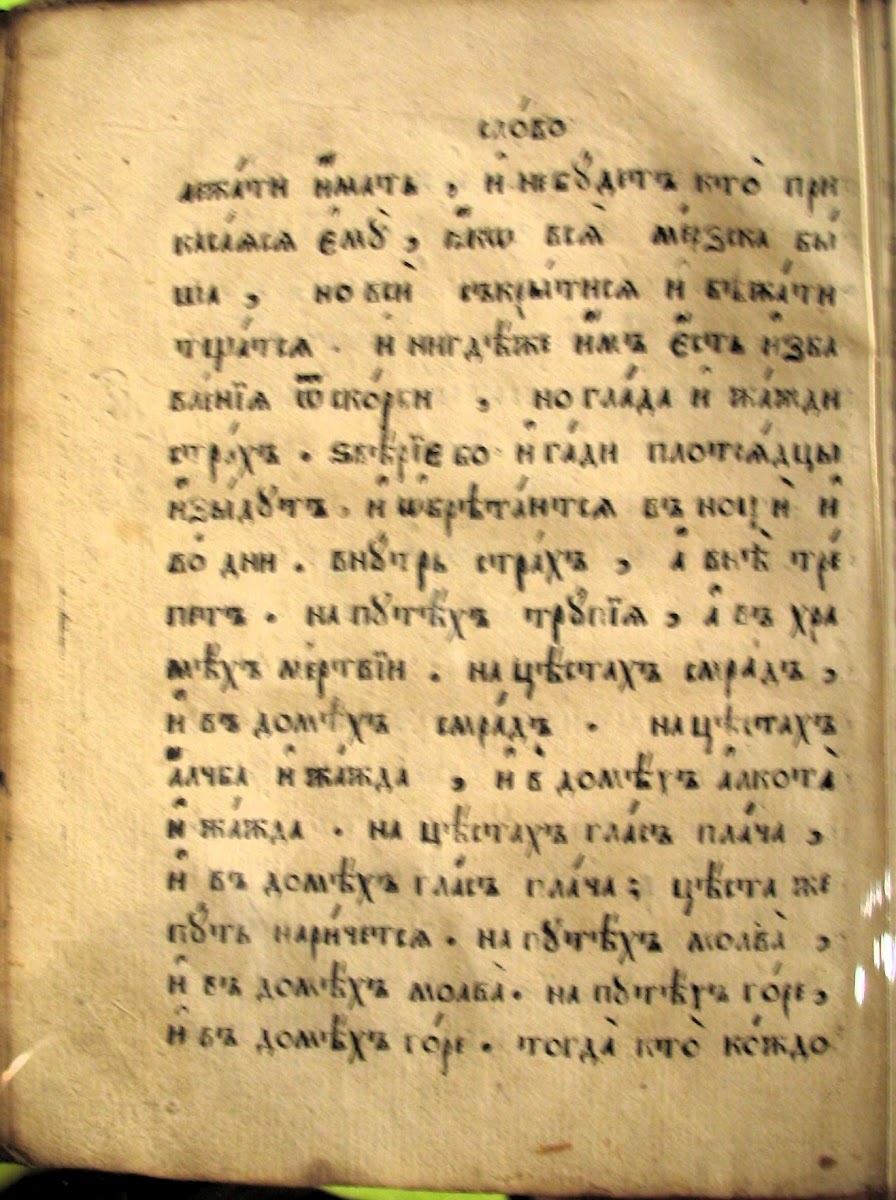 сло́во
лежа́ти и҆́мать , и҆ не бꙋ́детъ кто̀ при
каса́ѧсѧ є҆мꙋ̀ , ꙗ҆́кѡ всѧ̀ ме́рзска бы́
ша , но всѝ съкры́тисѧ и҆ бѣжа́ти
тща́тсѧ . и҆ нигдѣ́же и҆́мъ є҆́сть и҆зба
вле́нїѧ ѿ ско́рби , но гла́да и҆ жа́жди
стра́хъ . ѕвѣ́рїе бо и҆ га́ди плотоѧ́дцы
и҆зы́дꙋтъ . и҆ ѡ҆брѣта́ютсѧ въ нощѝ и҆
во́ дни . внꙋ́трь стра́хъ , а҆ внѣ̀ тре́
петъ . на пꙋтѣ́хъ трꙋ́пїѧ , а҆ въ хра
мѣ́хъ ме́ртвїи . на цѣ́стахъ смра́дъ ,
и҆ въ домѣ́хъ смра́дъ . на цѣ́стахъ
а҆́лчба и҆ жа́жда , и҆ в домѣ́хъ а҆лкота̀
и҆ жа́жда . на цѣ́стахъ гла́съ пла́ча ,
и҆ въ домѣ́хъ гла́съ пла́ча ; цѣ́ста же
пꙋ́ть нари́четсѧ . на пꙋтѣ́хъ молва̀ ,
и҆ въ домѣ́хъ молва̀ . на пꙋтѣ́хъ го́ре ,
и҆ въ домѣ́хъ го́ре . тогда̀ кто̀ ко́ждо